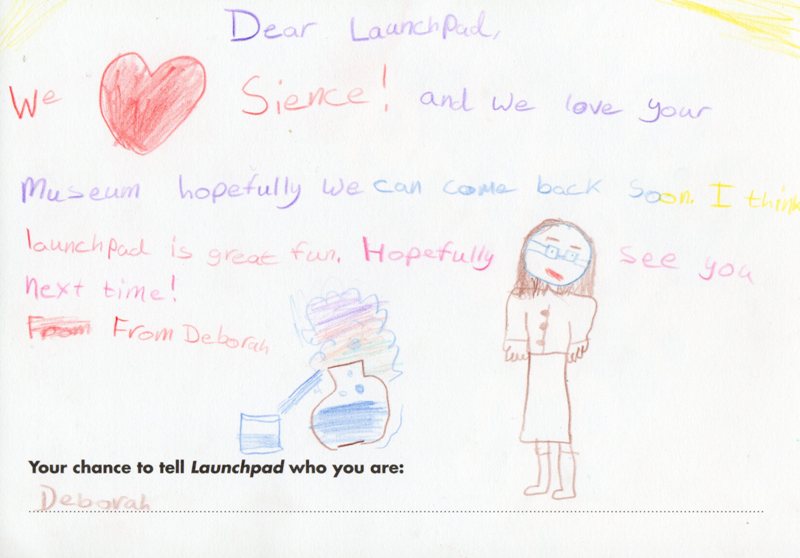 Dear Launchpad,
We Sience! and we love your
Museum hopefully we can come back soon. I think
launchpad is great fun. Hopefully see you
next time!
From From Deborah
Your chance to tell Launchpad who you are:
Deborah